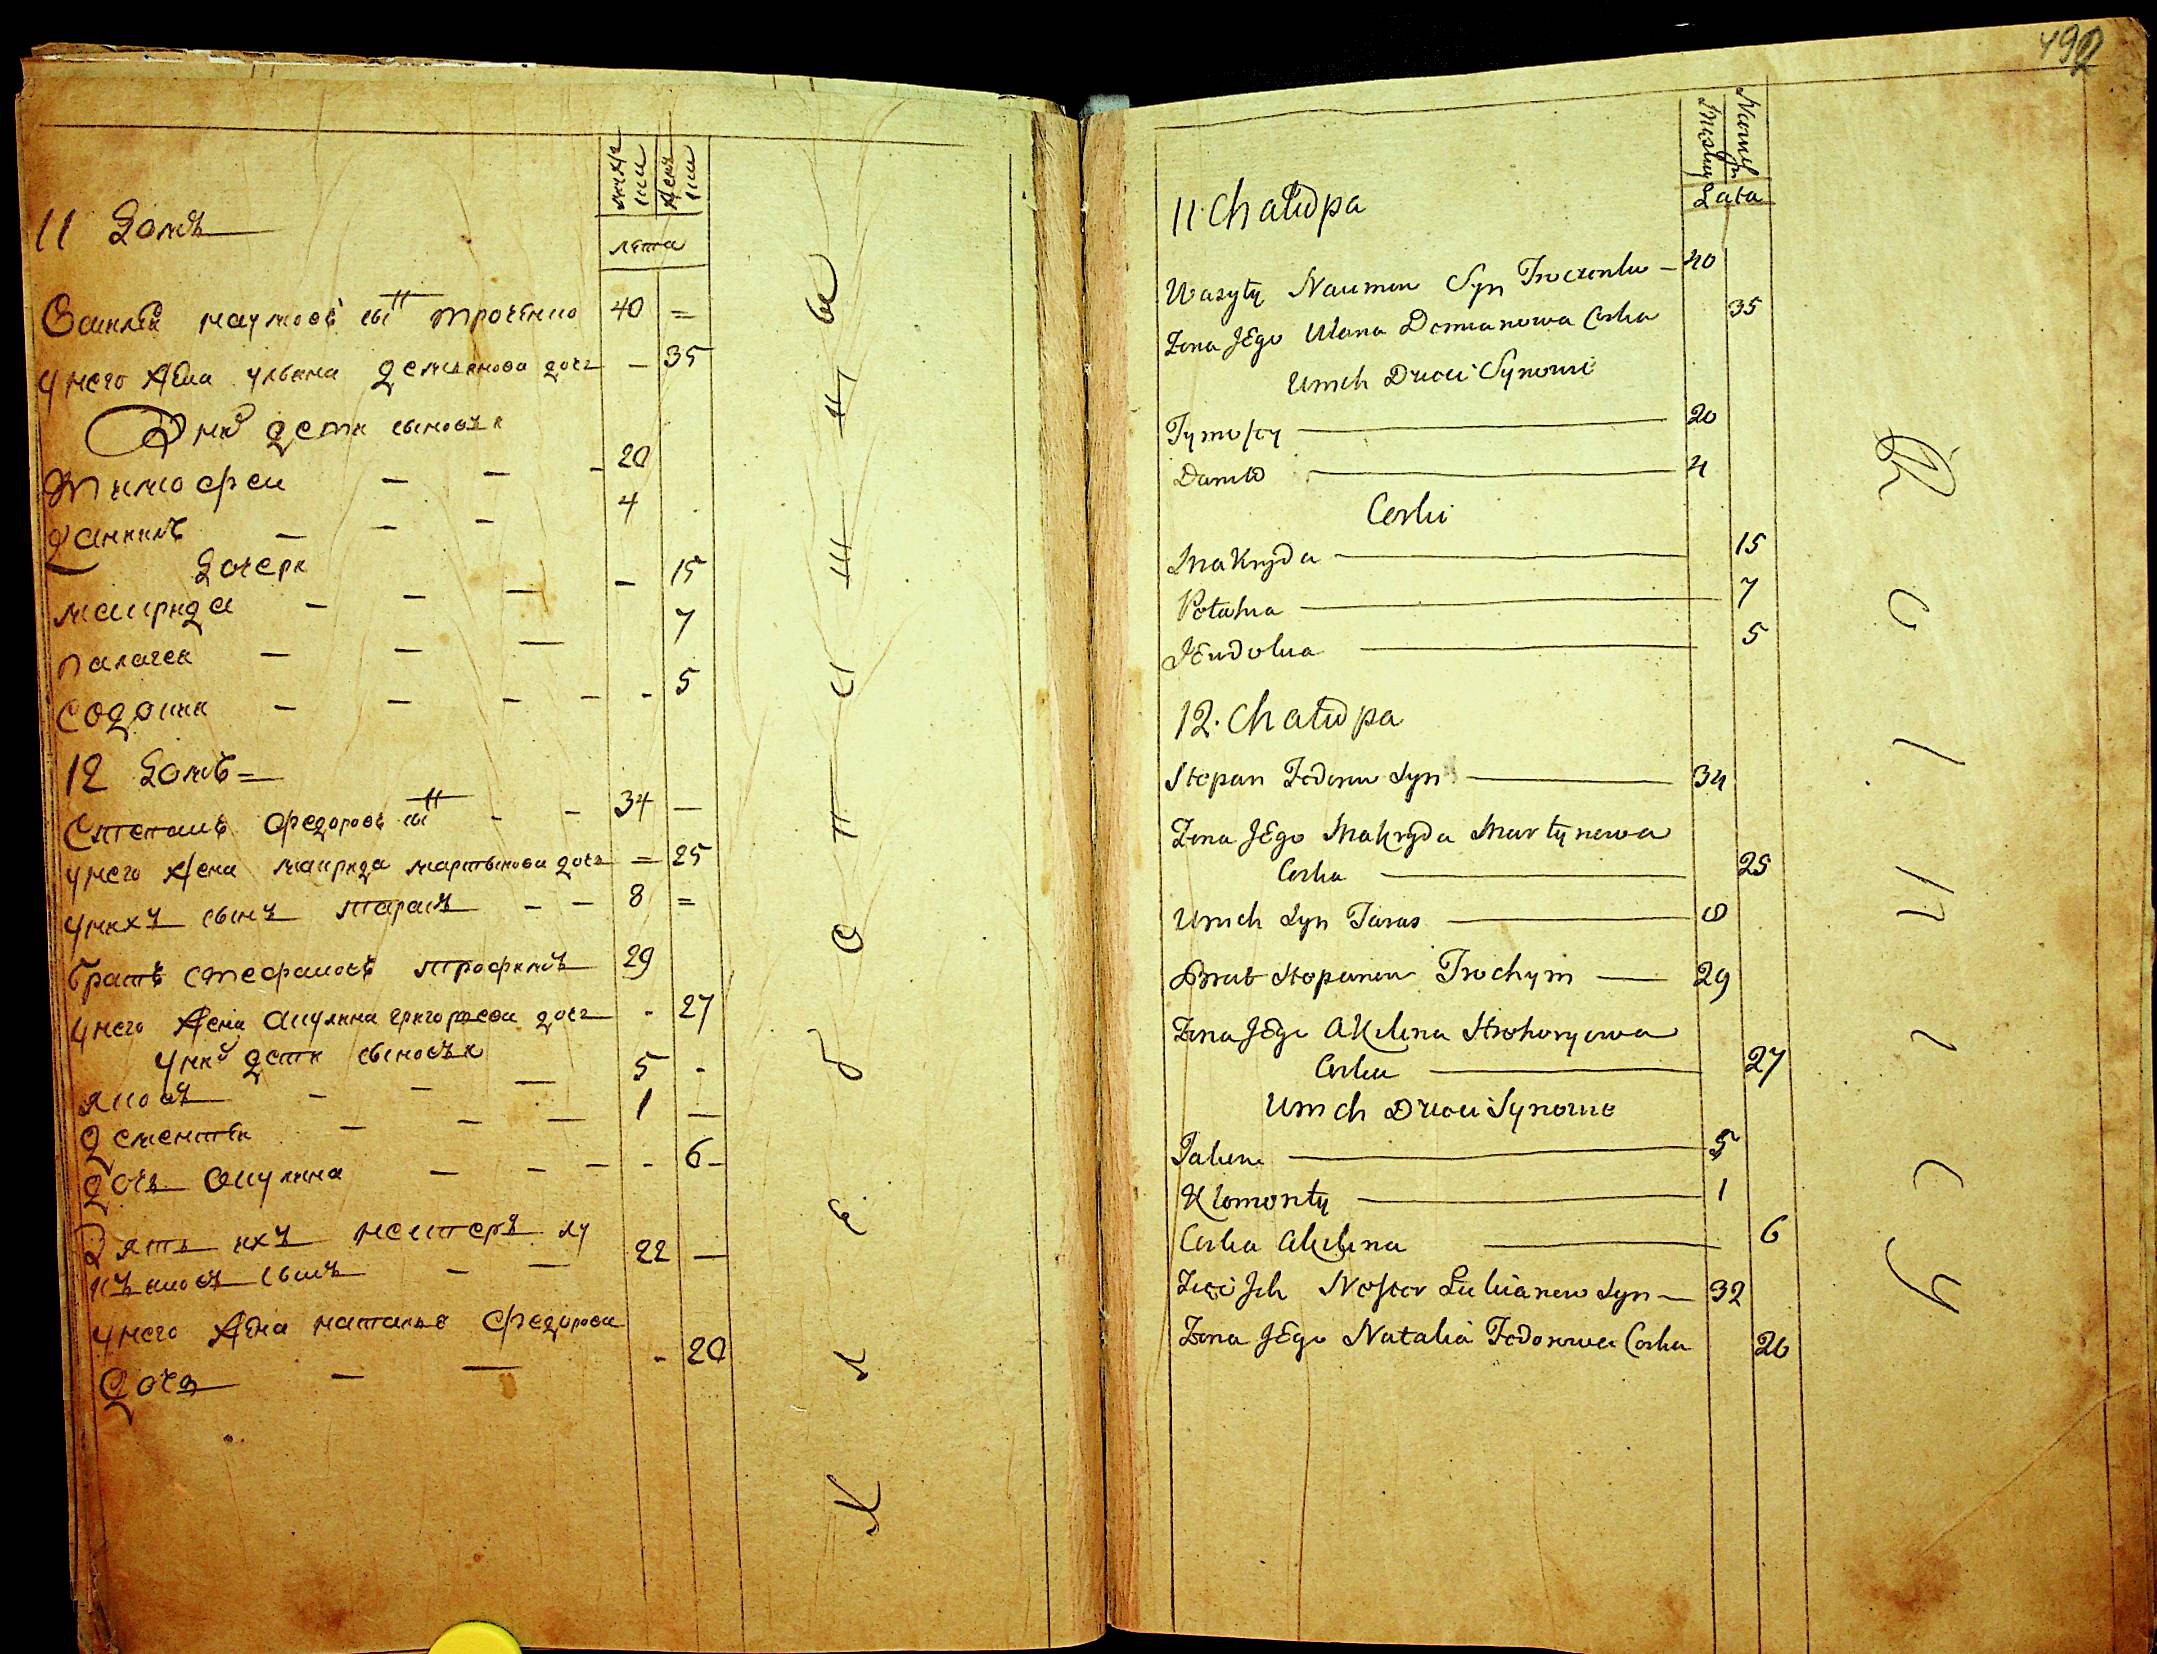 492
мужс
кии
женс
кии
лѣта
11 Домъ
Василей наумовъ сынъ троченко 40 =
у него жена ульяна демьянова дочь — 35
У них дети сыновья
Тимофеи — — - 20
Даниилъ — — - 4
Дочери
макрида — — — — 15
палагея — — — 7
Евдокия — — — — - 5
12 Домъ =
Степанъ федоровъ сынъ - - 34 —
у него жена макрида мартынова дочь = 25
у нихъ сынъ тарасъ - - 8 =
братъ стефановъ трофимъ 29
у него жена акулина григорьева дочь - 27
у них дети сыновья
яковъ - - — 5 -
Дементей — — — 1 —
Дочь акулина — - — - 6 -
Зять ихъ нестеръ лу
кьяновъ сынъ - — 22 —
у него жена наталья федорова
Дочь — — - 20
К л е б о п а ш ц ы
Męskiey
Niewieś
Lata
11. Chałupa
Wasyly Naumow Syn Troczenko — 40
Zona JEgo Ulana Demianowa Corka 35
Unich Dzieci Synowie
Tymofey — 20
Daniło — 4
Corki
Makryda — 15
Połahia — 7
JEwdokia — 5
12. Chałupa
Stepan Fedorow Syn — 34
Zona JEgo Makryda Martynowa
Corka — 25
Unich Syn Taras — 8
Brat Stepanow Trochym — 29
Zona JEgo Akilina Hrohoryowa
Corka — 27
Unich Dzieci Synowie
Jakow — 5
Klementy — 1
Corka Akilina — 6
Zięć Ich Nestor Łukianow Syn — 32
Zona JEgo Natalia Fedorowa Corka 20
R o l n i c y